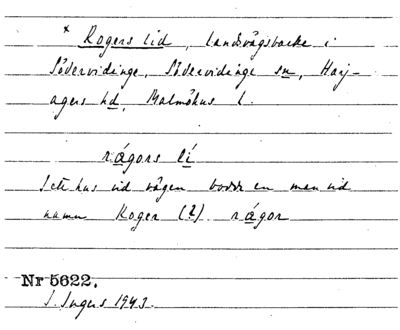 * Rogers lid, landsvägsbacke i
Södervidinge, Södervidinge sn, Harj-
agers hd, Malmöhus l.
rágors lí
I ett hus vid vägen bodde en man vid
namn Roger (?) rágor
Nr 5622.
I. Ingers 1943.